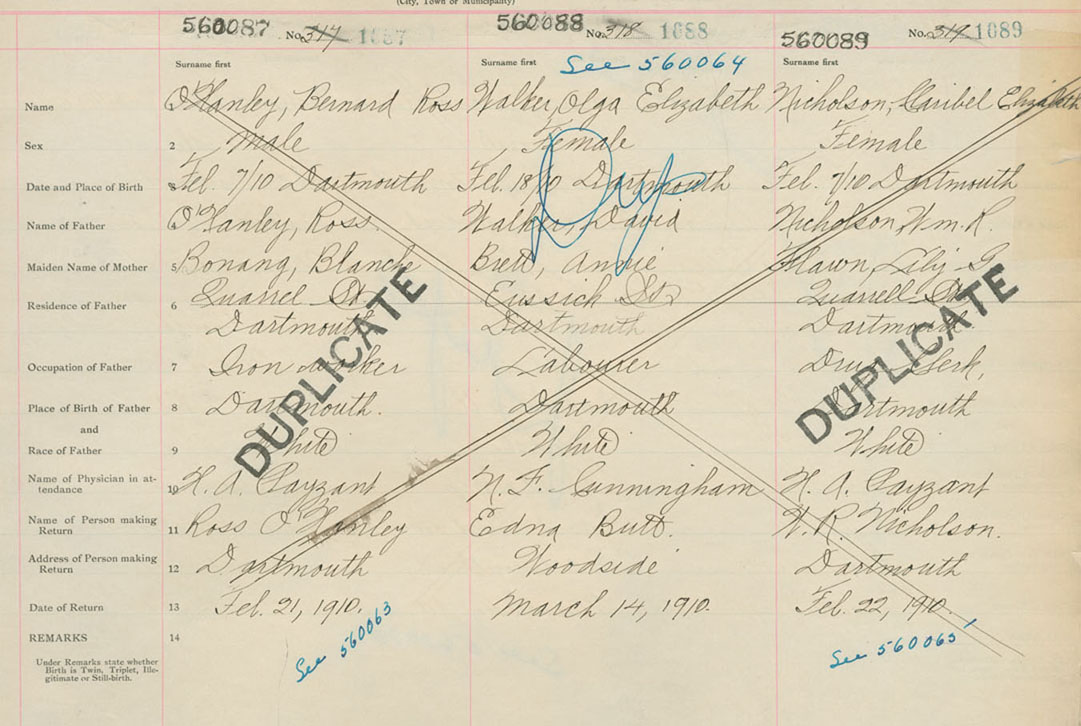 (City, Town or Municipality)
560087 No. 317 1087 560088 No. 318 1088 560089 No. 319 1089
Surname first Surname first See 560064 Surname first
Name O'Hanley, Bernard Ross Walker, Olga Elizabeth Nicholson, Claribel Elizabeth
Sex 2 Male Female Female
Date and Place of Birth 3 Feb. 7/10 Dartmouth Feb. 18/10 Dartmouth Feb. 7/10 Dartmouth
Dup
Name of Father O'Hanley, Ross. Walker, David Nicholson, Wm. R.
Maiden Name of Mother 5 Bonang, Blanche Brett, Annie Lily G
Residence of Father 6 Quarrel St. St. Quarrell St.
Dartmouth Dartmouth Dartmouth
Occupation of Father 7 Iron Worker Labourer Drug Clerk,
Place of Birth of Father 8 Dartmouth. Dartmouth Dartmouth
and
Race of Father 9 White White White
DUPLICATE DUPLICATE
Name of Physician in at-
tendance 10 H. A. Payzant N. F. Cunningham H. A. Payzant
Name of Person making
Return 11 Ross O'Hanley Edna Butt. W. R. Nicholson.
Address of Person making
Return 12 Dartmouth Woodside Dartmouth
Date of Return 13 Feb. 21, 1910. March 14, 1910. Feb. 22, 1910.
REMARKS 14 See 560063 See 560065
Under Remarks state whether
Birth is Twin, Triplet, Ille-
gitimate or Still-birth.